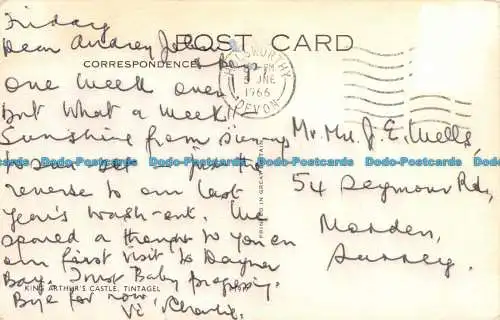 Friday
POST CARD
Dear Audrey John
& boys
CORRESPONDENCE
One week over
but what a week!
Sunshine from sunup
to sun set just the
reverse to our last
year's wash-out. We
spared a thought to you on
our first visit to Daymer
Bay. Trust Baby progressing.
Bye for now,
Vi & Charlie.
HOLSWORTHY
PM
JNE
1966
DEVON
Mr. Mrs. J. E. Wells,
54 Seymour Rd,
Morden,
Surrey.
PRINTED IN GREAT BRITAIN
KING ARTHUR'S CASTLE, TINTAGEL
Dodo-Postcards Dodo-Postcards Dodo-Postcards Dodo-Postcards Dodo-Postcards